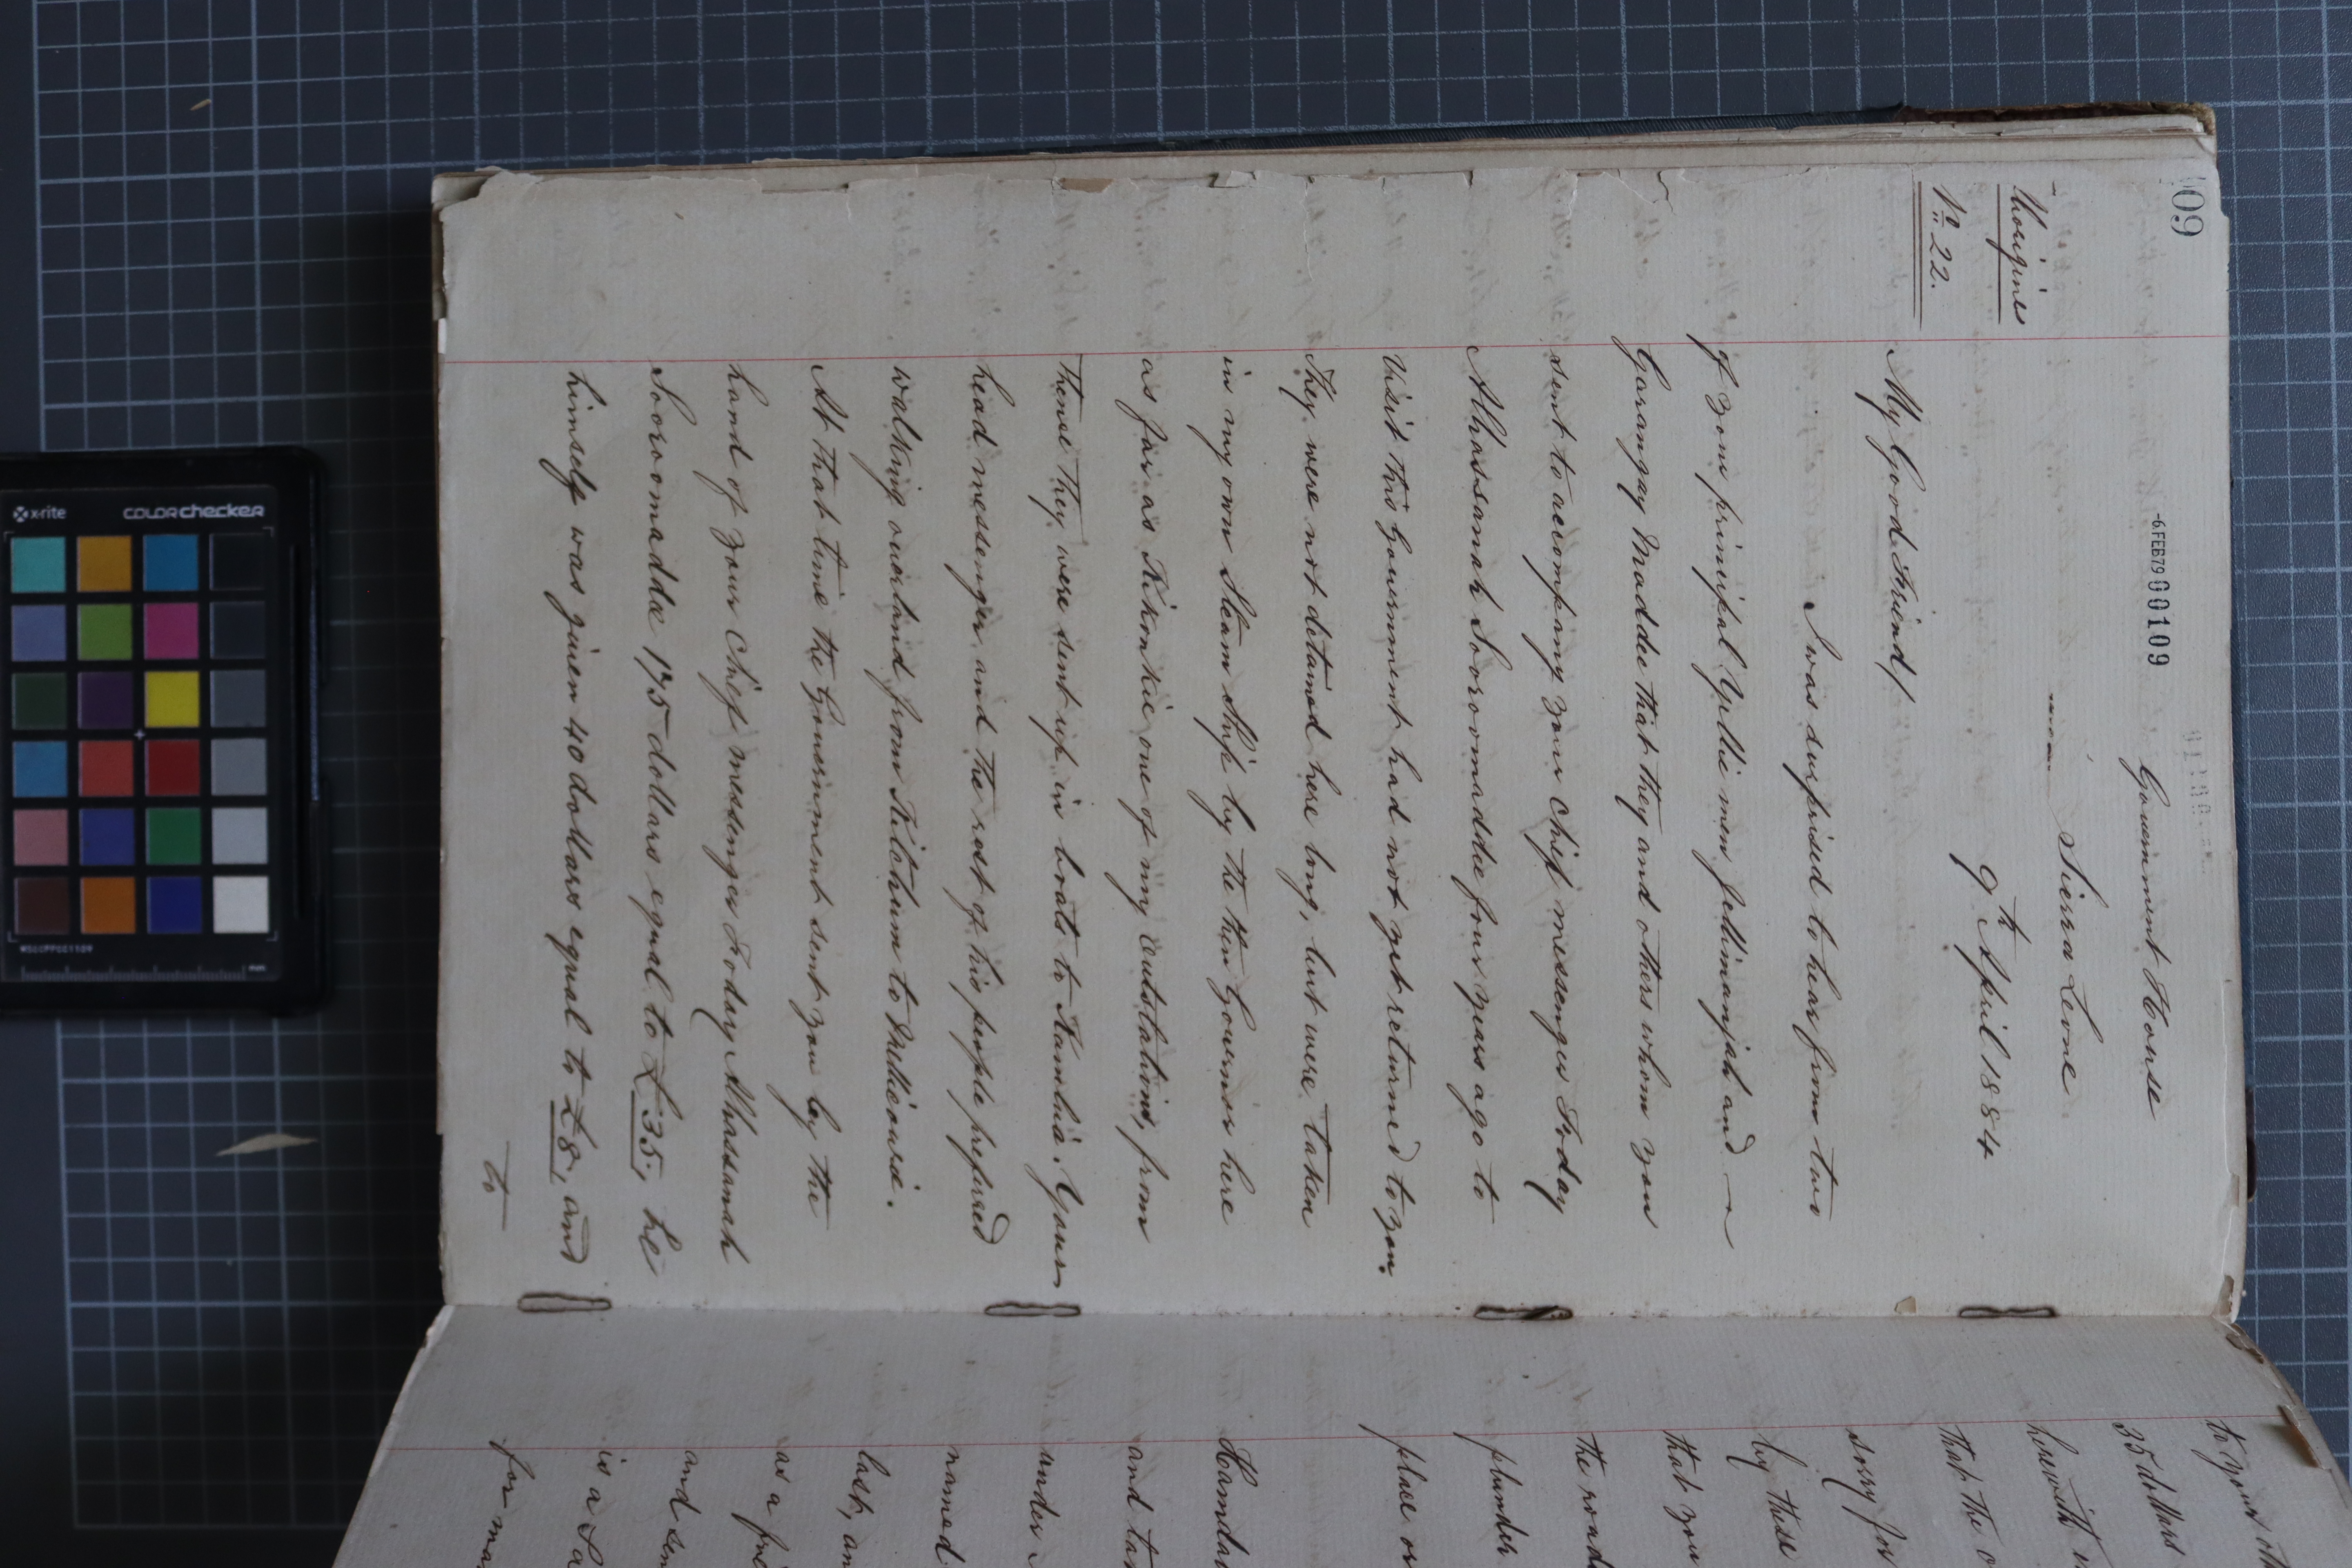 09
-6.FEB79 000109
Government House
Sierra Leone
9th April 1884
Aborigines
No 22.
My Good Friend/
I was surprised to hear from two
of your principal Yellie men Jellimanjah and
Garangay Maddie that they and others whom you
sent to accompany your Chief messenger Foday
Alhassanah Sooroomaddie four years ago to
Visit this Government had not yet returned to you.
They were not detained here long, but were taken
in my own Steam Ship by the then Governor here
as far as Kikonkie one of my outstations, from
thence they were sent up in boats to Kambia. Your
head messenger and the rest of his people preferred
walking overland from Kikonkie to Mellicourie.
At that time the Government sent you by the
hand of your Chief messenger Foday Alhassanah
Sooroomaddie 175 dollars equal to £35, he
himself was given 40 dollars equal to £8, and
to
35 dollars
herewith
that the
sorry for
by these
that you
the road
plunder
place or
and
under
named
last, an
as a
and
is a
for
x-rite
colorchecker
MSCCPPCC1109
mm